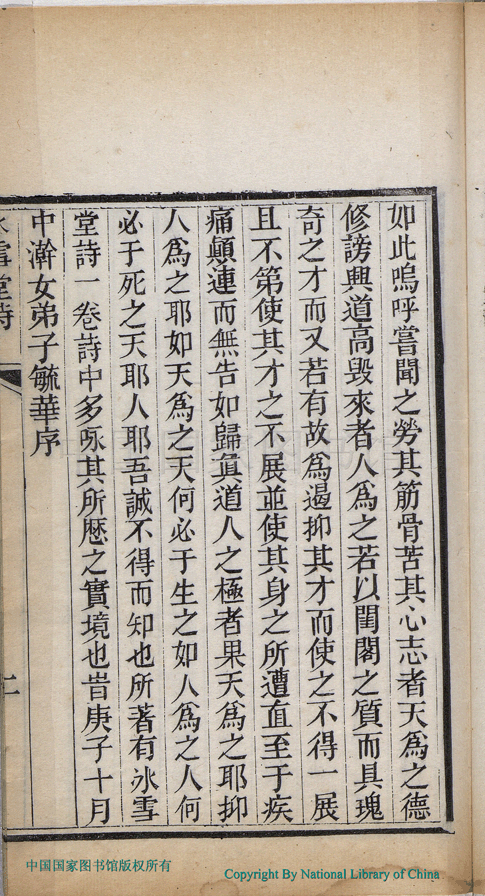 如此嗚呼嘗聞之勞其筋骨苦其心志者天爲之德
修謗興道高毀來者人爲之若以閨閣之質而具瑰
奇之才而又若有故爲遏抑其才而使之不得一展
且不第使其才之不展並使其身之所遭直至于疾
痛顛連而無告如歸眞道人之極者果天爲之耶抑
人爲之耶如天爲之天何必于生之如人爲之人何
必于死之天耶人耶吾誠不得而知也所著有冰雪
堂詩一卷詩中多咏其所歷之實境也旹庚子十月
中澣女弟子毓華序
冰雪堂詩
二
中国国家图书馆版权所有
Copyright By National Library of China